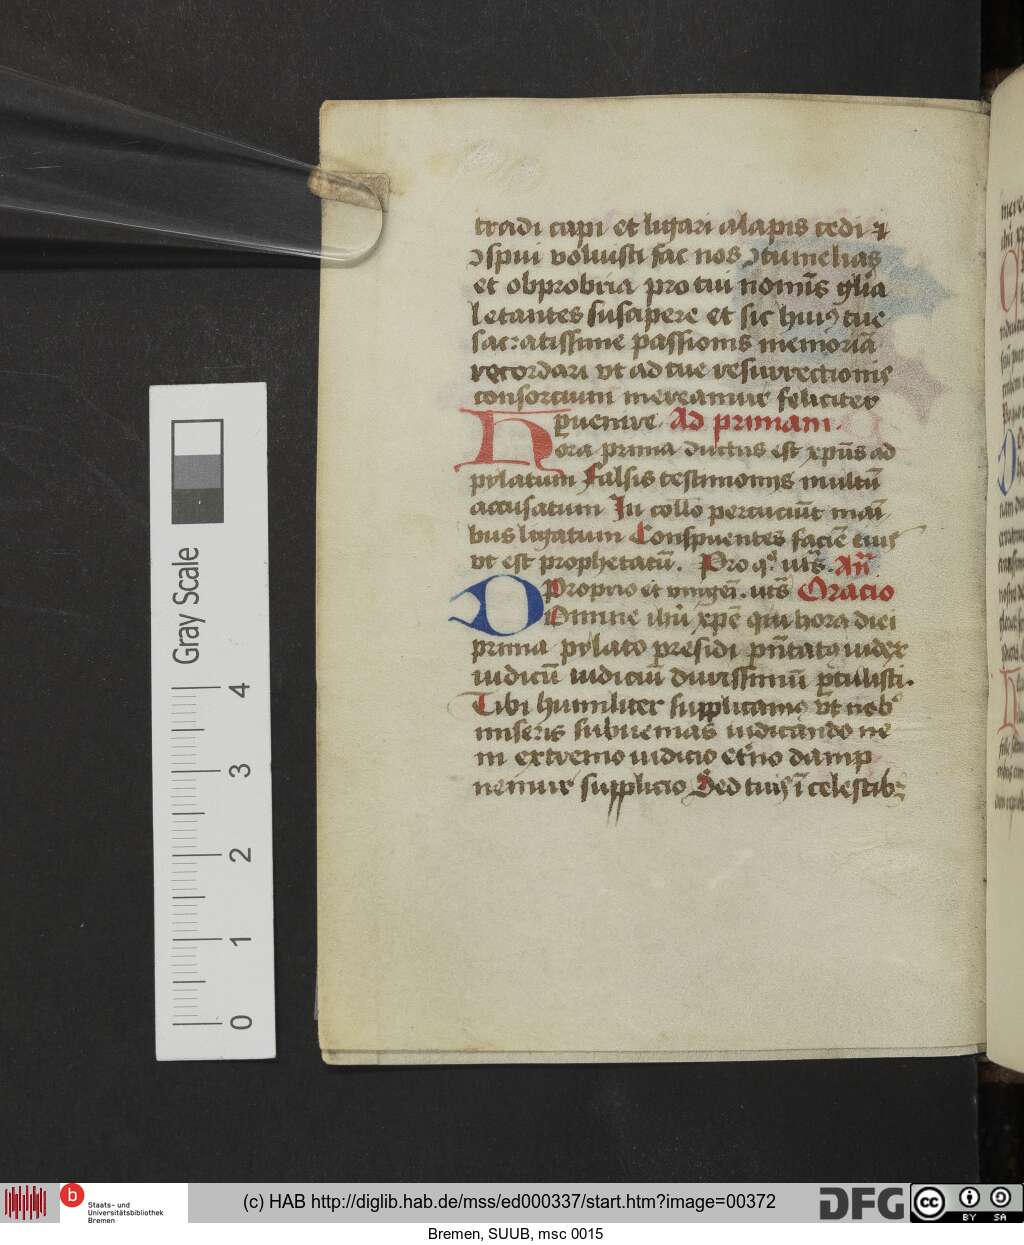 tradi capi et ligari alapis cedi ⁊
ɔspui voluisti fac nos ɔtumelias
et obprobria pro tui nomīs gl̄ia
letantes suscipere et sic huiꝰ tue
sacratissime passionis memoriā
recordari vt ad tue resurrectionis
consorcium mereamur feliciter
ꝑuenire. Ad primam.
Hora prima ductus est xp̄us ad
pylatum Falsis testimonijs multū
accusatum In collo percuciūt mani
bus ligatum Conspuentes faciē eius
vt est prophetatū. Pro qͦ. vt̄s. An̄
Proprio et vnigen̄. vt̄s Oracio
Domine ihū xpē qui hora diei
prima pylato presidi pn̄tata iudex
iudicū iudiciū durissimū ꝑtulisti.
Tibi humiliter supplicamꝰ vt nobˢ
miseris subuenias iudicando ne
in extremo iudicio et̄no damp
nemur supplicio Sed tuis ī celestibꝫ
Gray Scale
4
3
2
1
0
b Staats- und
Universitätsbibliothek
Bremen
(c) HAB http://diglib.hab.de/mss/ed000337/start.htm?image=00372
DFG
cc BY SA
Bremen, SUUB, msc 0015